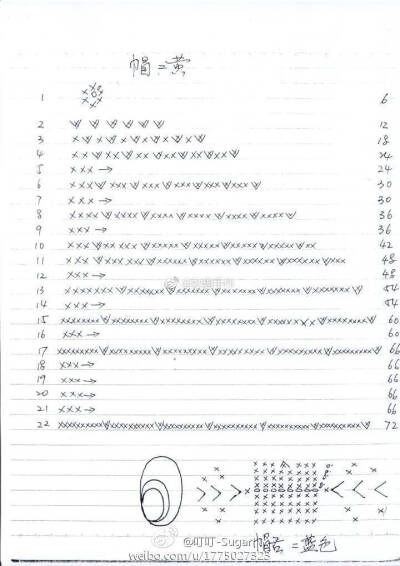 帽=黄
1 6
2 12
3 18
4 24
5 xxx→ 24
6 30
7 xxx→ 30
8 36
9 xxx→ 36
10 42
11 48
12 xxx→ 48
13 54
14 xxx→ 54
15 60
16 xxx→ 60
17 66
18 xxx→ 66
19 xxx→ 66
20 xxx→ 66
21 xxx→ 66
22 72
@叮叮-Sugar
帽舌=蓝色